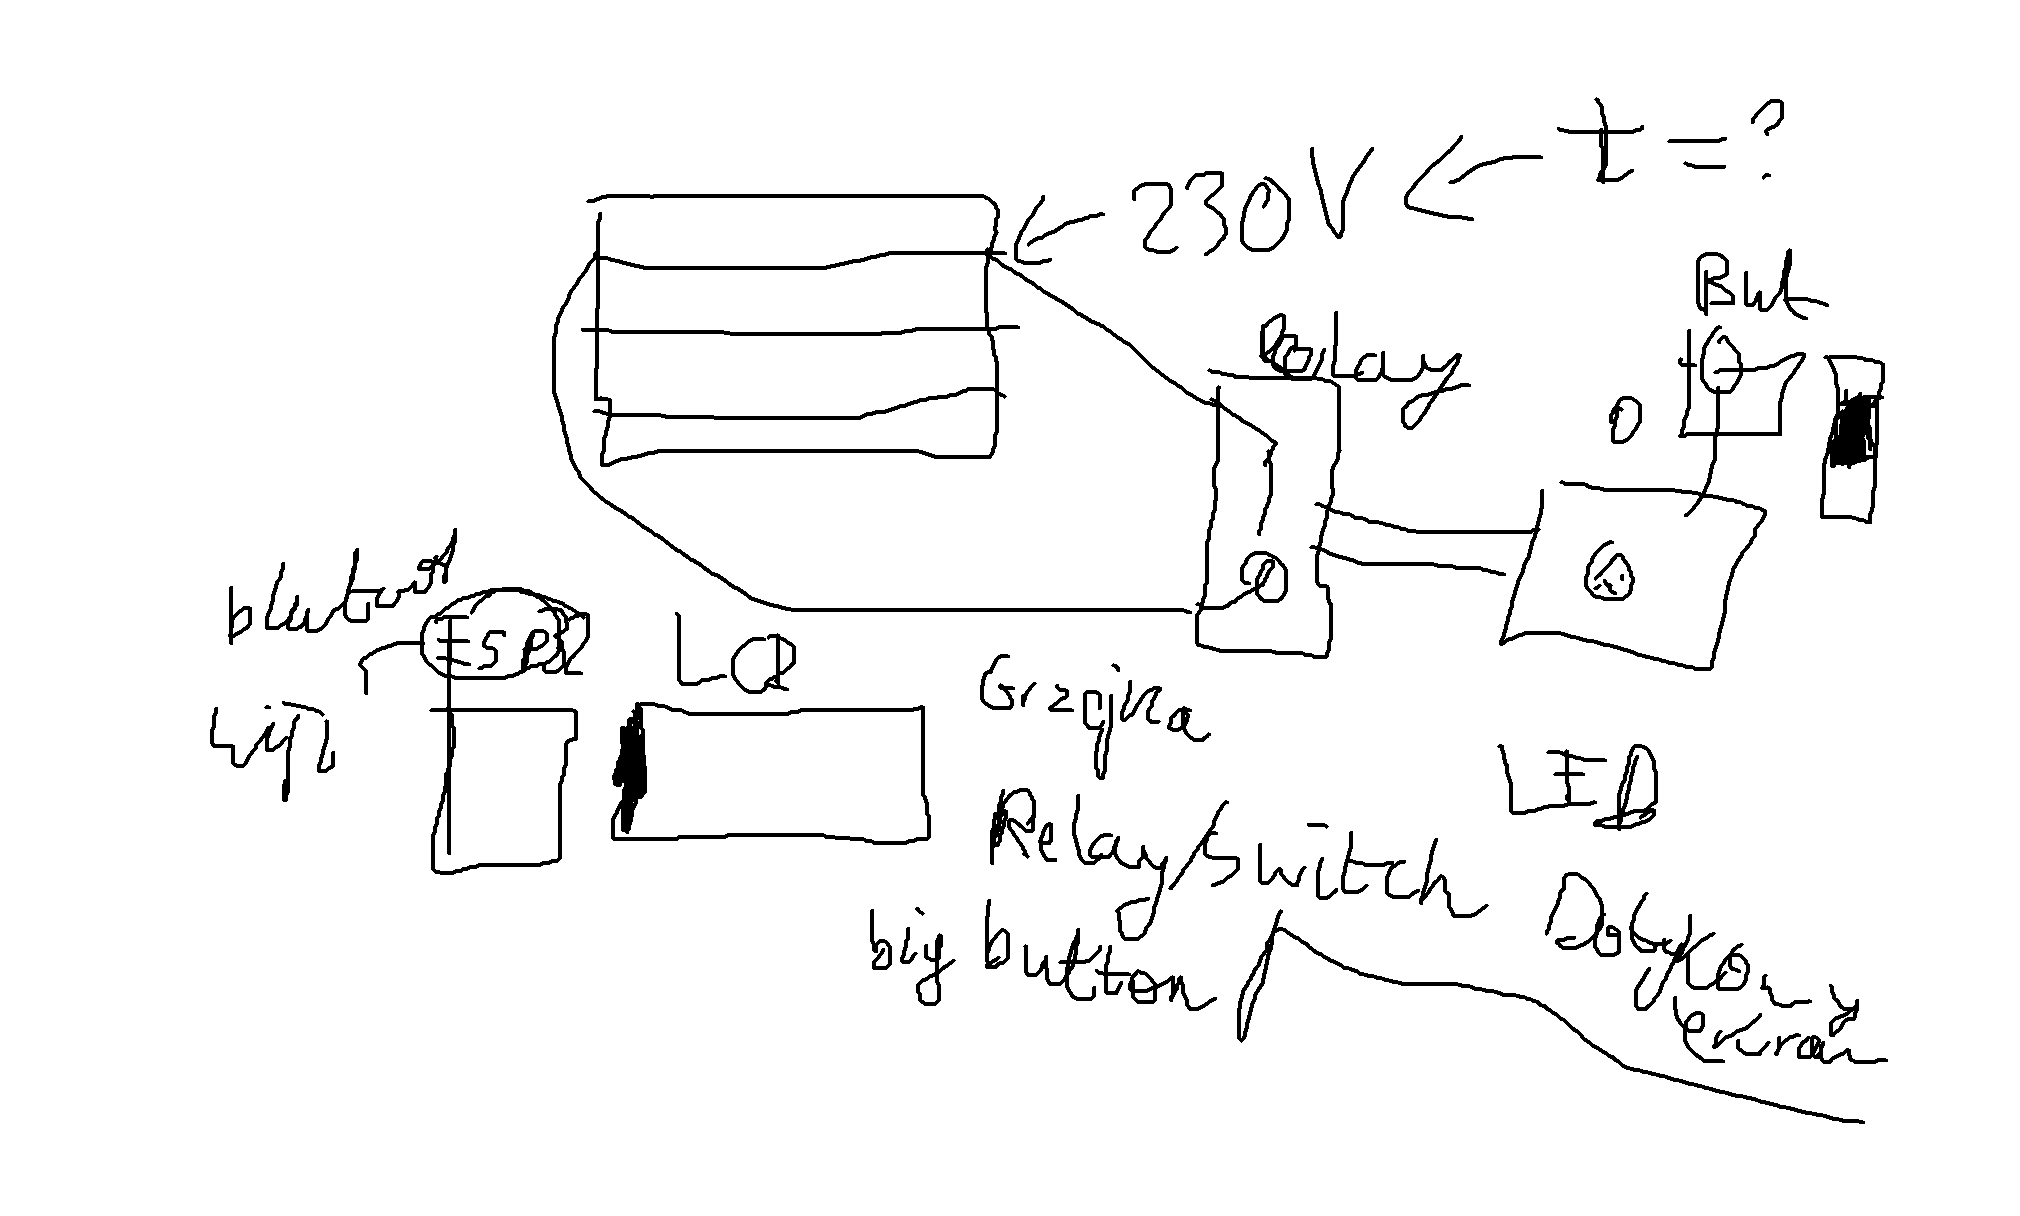 t = ?
230V
But
Relay
blutoot
ESP
LCD
wifi
Grzajka
LED
Relay/switch
big button
Dotykowy
ekran